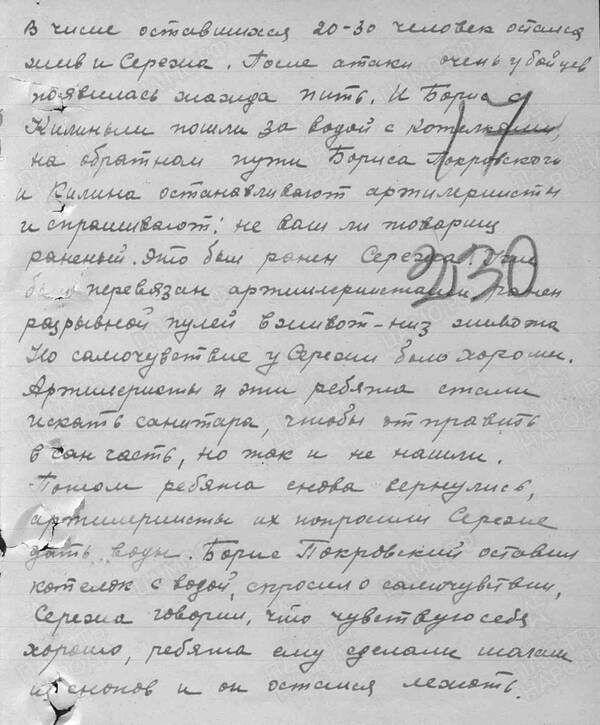 В числе оставшихся 20-30 человек остался
жив и Сережа. После атаки очень у бойцев
появилась жажда пить. И Борис с
Килиным пошли за водой с котелками,
17
на обратном пути Бориса Покровского
и Килина останавливают артилеристы
и спрашивают: не ваш ли товарищ
раненый. Это был ранен Сережа. Он
230
был перевязан артиллеристами ранен
разрывной пулей в живот-низ живота
Но самочувствие у Сережи было хорошее.
Артилеристы и эти ребята стали
искать санитара, чтобы отправить
в сан часть, но так и не нашли.
Потом ребята снова вернулись,
артилеристы их попросили Сереже
дать воды. Борис Покровский оставил
котелок с водой, спросил о самочувствии,
Сережа говорил, что чувствую себя
хорошо, ребята ему сделали шалаш
из снопов и он остался лежать.